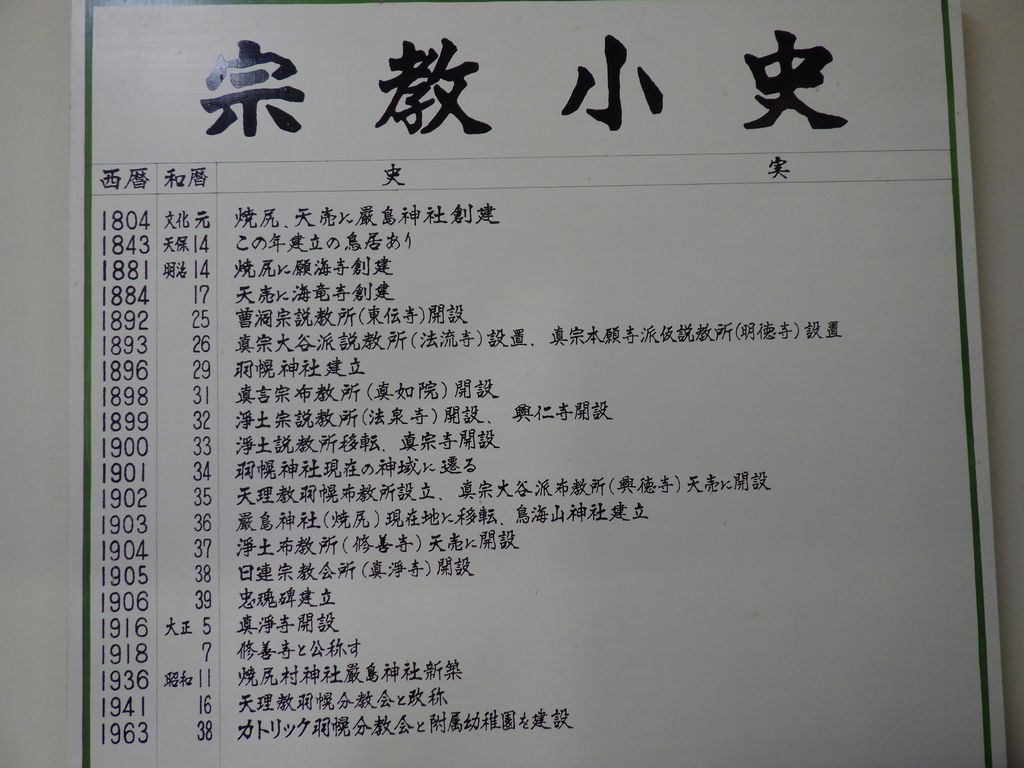 宗教小史
西暦 和暦 史実
1804 文化元 焼尻、天売に厳島神社創建
1843 天保14 この年建立の鳥居あり
1881 明治14 焼尻に願海寺創建
1884 17 天売に海竜寺創建
1892 25 曹洞宗説教所(東伝寺)開設
1893 26 真宗大谷派説教所(法流寺)設置、真宗本願寺派仮説教所(明徳寺)設置
1896 29 羽幌神社建立
1898 31 真言宗布教所(真如院)開設
1899 32 淨土宗説教所(法泉寺)開設、興仁寺開設
1900 33 淨土説教所移転、真宗寺開設
1901 34 羽幌神社現在の神域に遷る
1902 35 天理教羽幌布教所設立、真宗大谷派布教所(興徳寺)天売に開設
1903 36 厳島神社(焼尻)現在地に移転、鳥海山神社建立
1904 37 淨土布教所(修善寺)天売に開設
1905 38 日連宗教会所(真淨寺)開設
1906 39 忠魂碑建立
1916 大正5 真淨寺開設
1918 7 修善寺と公称す
1936 昭和11 焼尻村神社厳島神社新築
1941 16 天理教羽幌分教会と改称
1963 38 カトリック羽幌分教会と附属幼稚園を建設